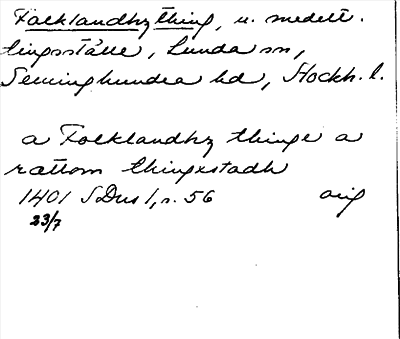 Folklandhz thing, u. medelt.
tingsställe, Lunda sn,
Seminghundra hd, Stockh. l.
a Folklandhz thinge a
rættom thingxstadh
1401 SDns 1, s. 56 orig
23/7